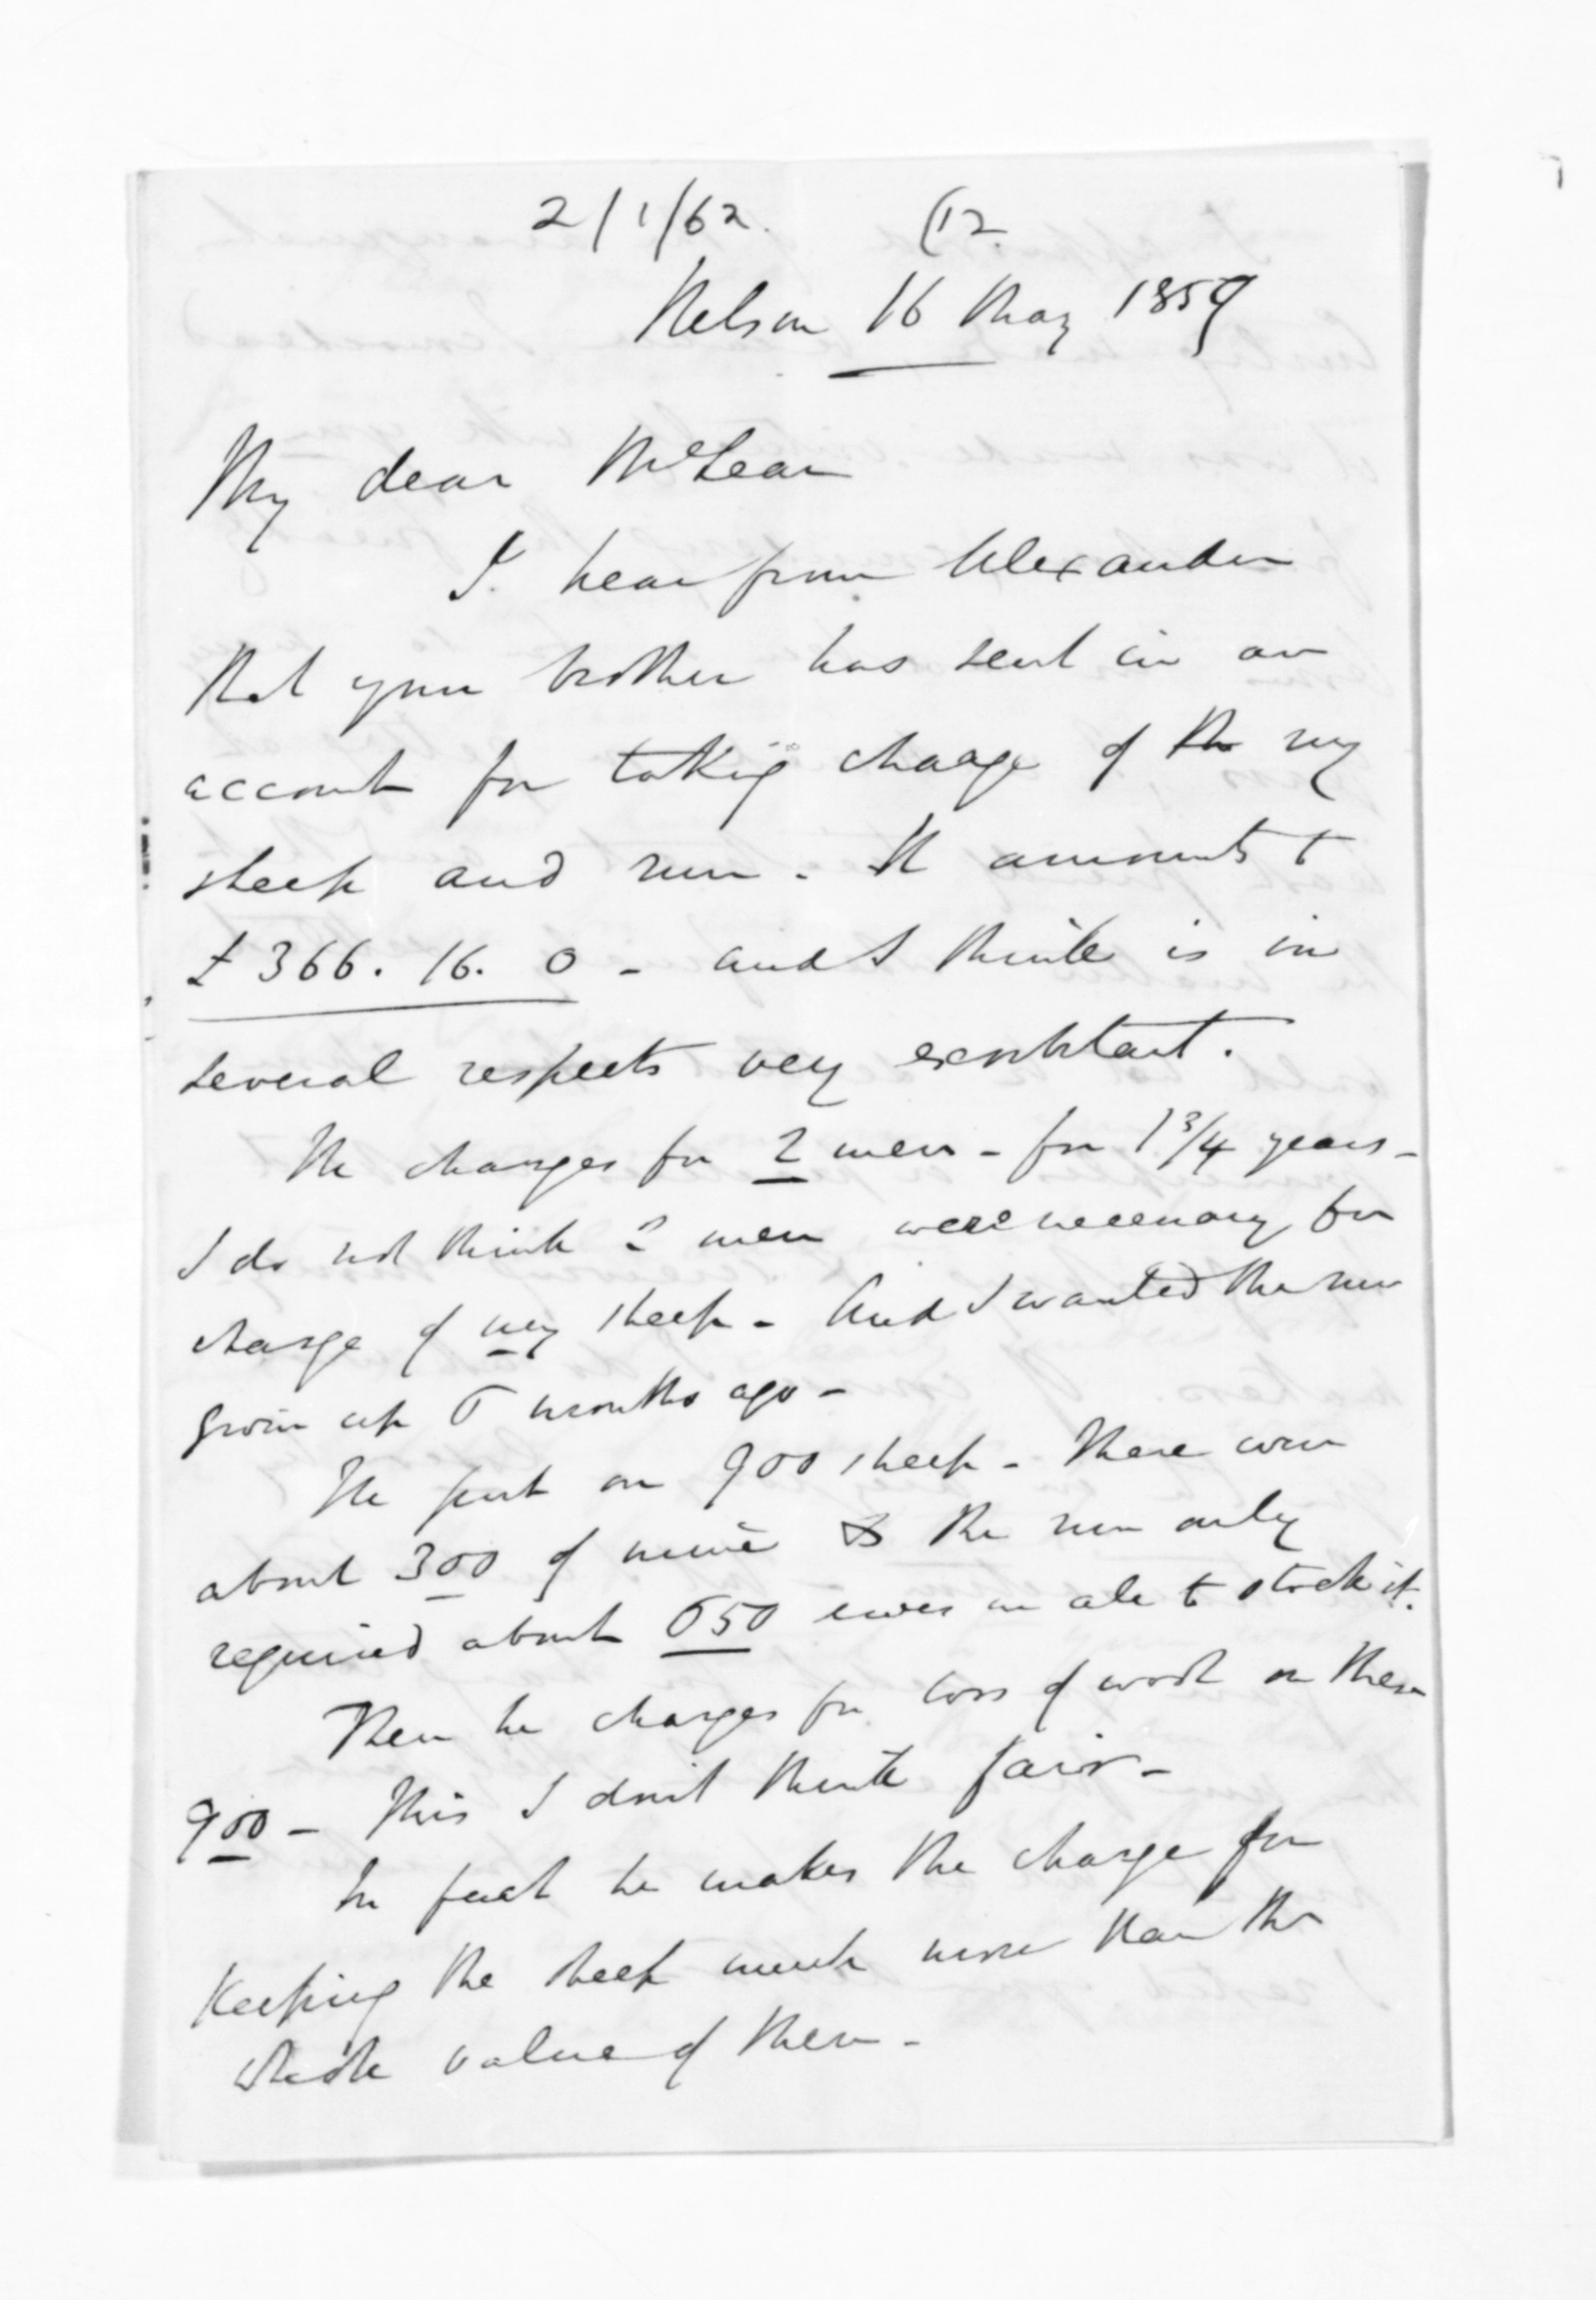 2/1/62. (12.
Nelson 16 May 1859
My dear McLean
I hear from Alexander
that your brother has sent in an
account for taking charge of the my
sheep and run. It amounts to
£366. 16. 0 - and I think is in
several respects very exorbitant.
He charges for 2 men - for 1 3/4 years -
I do not think 2 men were necessary for
charge of my sheep - And I wanted the run
given up 6 months ago -
He put on 900 sheep - There were
about 300 of mine & the run only
required about 650 ewes in all to stock it.
Then he charges for loss of wool on these
900 - This I don't think fair -
In fact he makes the charge for
keeping the sheep much more than the
whole value of them -